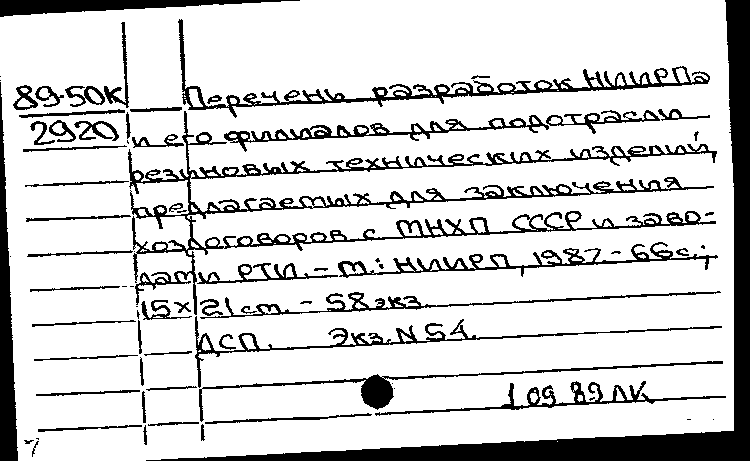 89-50К
2920
Перечень разработок НИИРПа
и его филиалов для подотрасли
резиновых технических изделий,
предлагаемых для заключения
хоздоговоров с МНХП СССР и заво-
дами РТИ. - М.: НИИРП, 1987. - 66с.;
15х21 ст. - 58экз.
ДСП. Экз. N 54.
1 09 89 ЛК